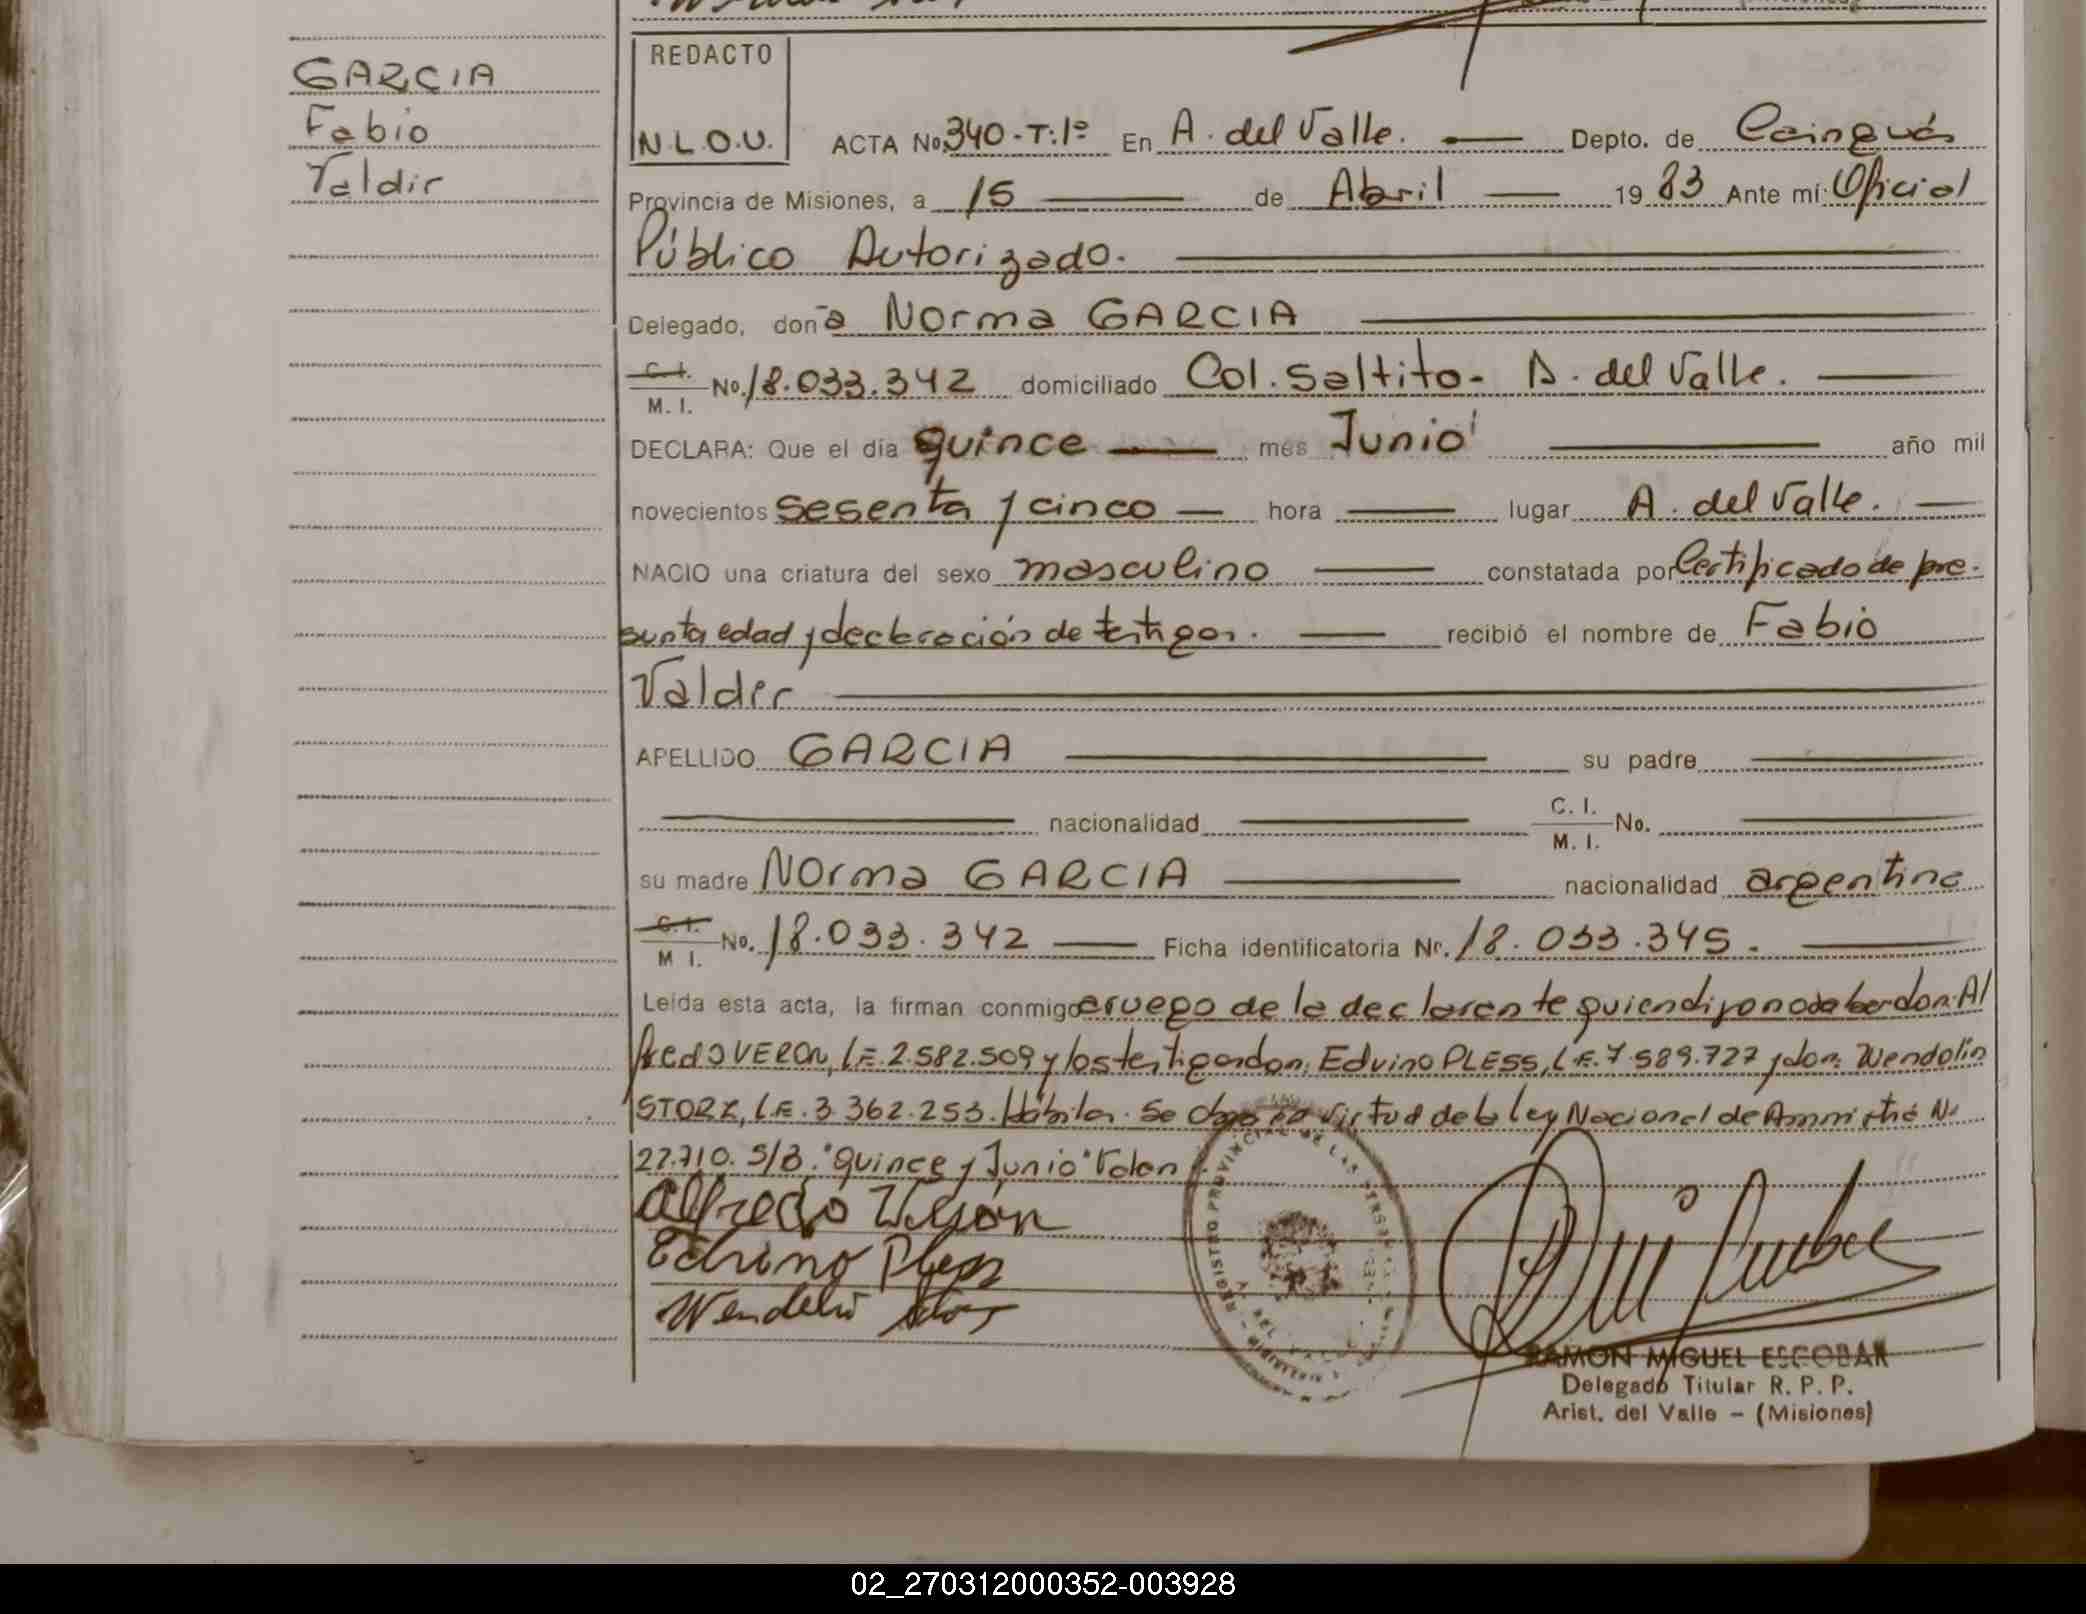 GARCIA
Fabio
Valdir
REDACTO
N.L.O.U.
ACTA No. 340-T:1º En A. del Valle. Depto. de Cainguás
Provincia de Misiones, a 15 de Abril 1983 Ante mí: Oficial
Público Autorizado.
Delegado, don~a Norma GARCIA
C. I.
M. I. No. 18.033.342 domiciliado Col. Saltito - A. del Valle.
DECLARA: Que el día quince mes Junio año mil
novecientos sesenta y cinco hora lugar A. del Valle.
NACIO una criatura del sexo masculino constatada por Certificado de pre-
sunta edad y declaración de testigos. recibió el nombre de Fabio
Valdir
APELLIDO GARCIA su padre
nacionalidad C. I.
M. I. No.
su madre Norma GARCIA nacionalidad argentina
C. I.
M I. No. 18.033.342 Ficha identificatoria Nr. 18.033.345.
Leída esta acta, la firman conmigo a ruego de la declarante quien dijo no saber don: Al
fredo VERON, L.E. 2.582.509 y los testigos don: Edvino PLESS, L.E. 7.589.727 y don: Wendolin
STORZ, L.E. 3.362.253. Hábiles. Se obra en virtud de la ley Nacional de Amnistía Nº
22.710. S/B. "quince y Junio" Valen.
Alfredo Verón
Edvino Pless
Wendelin
REGISTRO PROVINCIAL DE LAS PERSONAS
RAMON MIGUEL ESCOBAR
Delegado Titular R. P. P.
Arist. del Valle - (Misiones)
02_270312000352-003928